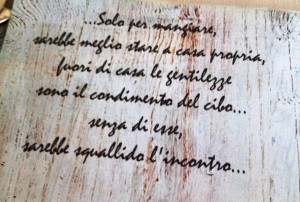 ...Solo per mangiare,
sarebbe meglio stare a casa propria,
fuori di casa le gentilezze
sono il condimento del cibo...
senza di esse,
sarebbe squallido l'incontro...